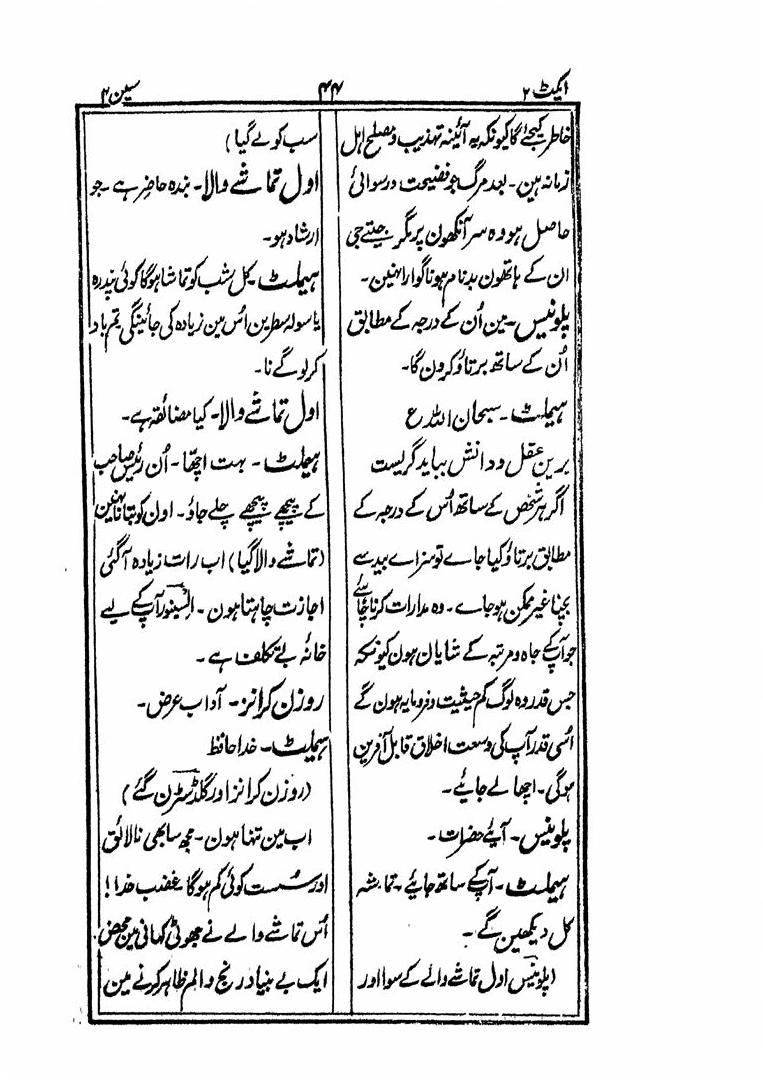 ایکٹ ۲
۴۴
سین ۲
خاطر کیجئے گا کیونکہ یہ آئینہ تہذیب و مصلح اہل
زمانہ ہین۔ بعد مرگ جو فضیحت و رسوائی
حاصل ہو وہ سر آنکھون پر مگر جیتے جی
ان کے ہاتھون بدنام ہونا گوارا نہین۔
پلونیس۔ مین اُن کے درجہ کے مطابق
اُن کے ساتھ برتاؤ کرون گا۔
ہیملٹ۔ سبحان اللہ ع
برین عقل و دانش بباید گریست
اگر ہر شخص کے ساتھ اُس کے درجہ کے
مطابق برتاؤ کیا جاے تو سزاے بید سے
بچنا غیر ممکن ہو جاے۔ وہ مدارات کرنا چاہئے
جو آپ کے جاہ و مرتبہ کے شایان ہون کیونکہ
جس قدر وہ لوگ کم حیثیت و فرومایہ ہون گے
اُسی قدر آپ کی وسعت اخلاق قابل آفرین
ہوگی۔ اچھا لے جائیے۔
پلونیس۔ آئیے حضرات۔
ہیملٹ۔ آپ کے ساتھ جائیے۔ تماشہ
کل دیکھین گے۔
(پلونیس اول تماشے والے کے سوا اور
سب کو لے گیا)
اول تماشے والا۔ بندہ حاضر ہے۔ جو
ارشاد ہو۔
ہیملٹ۔ کل شب کو تماشا ہوگا کوئی پندرہ
یا سولہ سطرین اُس مین زیادہ کی جائینگی تم یاد
کر لو گے نا۔
اول تماشے والا۔ کیا مضائقہ ہے۔
ہیملٹ۔ بہت اچھا۔ اُن رئیس صاحب
کے پیچھے پیچھے چلے جاؤ۔ اون کو بتانا نہین
(تماشے والا گیا) اب رات زیادہ آگئی
اجازت چاہتا ہون۔ السینور آپ کے لیے
خانۂ بے تکلف ہے۔
روزن کرانز۔ آداب عرض۔
ہیملٹ۔ خدا حافظ
(روزن کرانز اور گلڈسٹرن گئے)
اب مین تنہا ہون۔ مجھ سا بھی نالائق
اور سست کوئی کم ہوگا غضب خدا!!
اُس تماشے والے نے جھوٹی کہانی مین محض
ایک بے بنیاد رنج و الم ظاہر کرنے مین